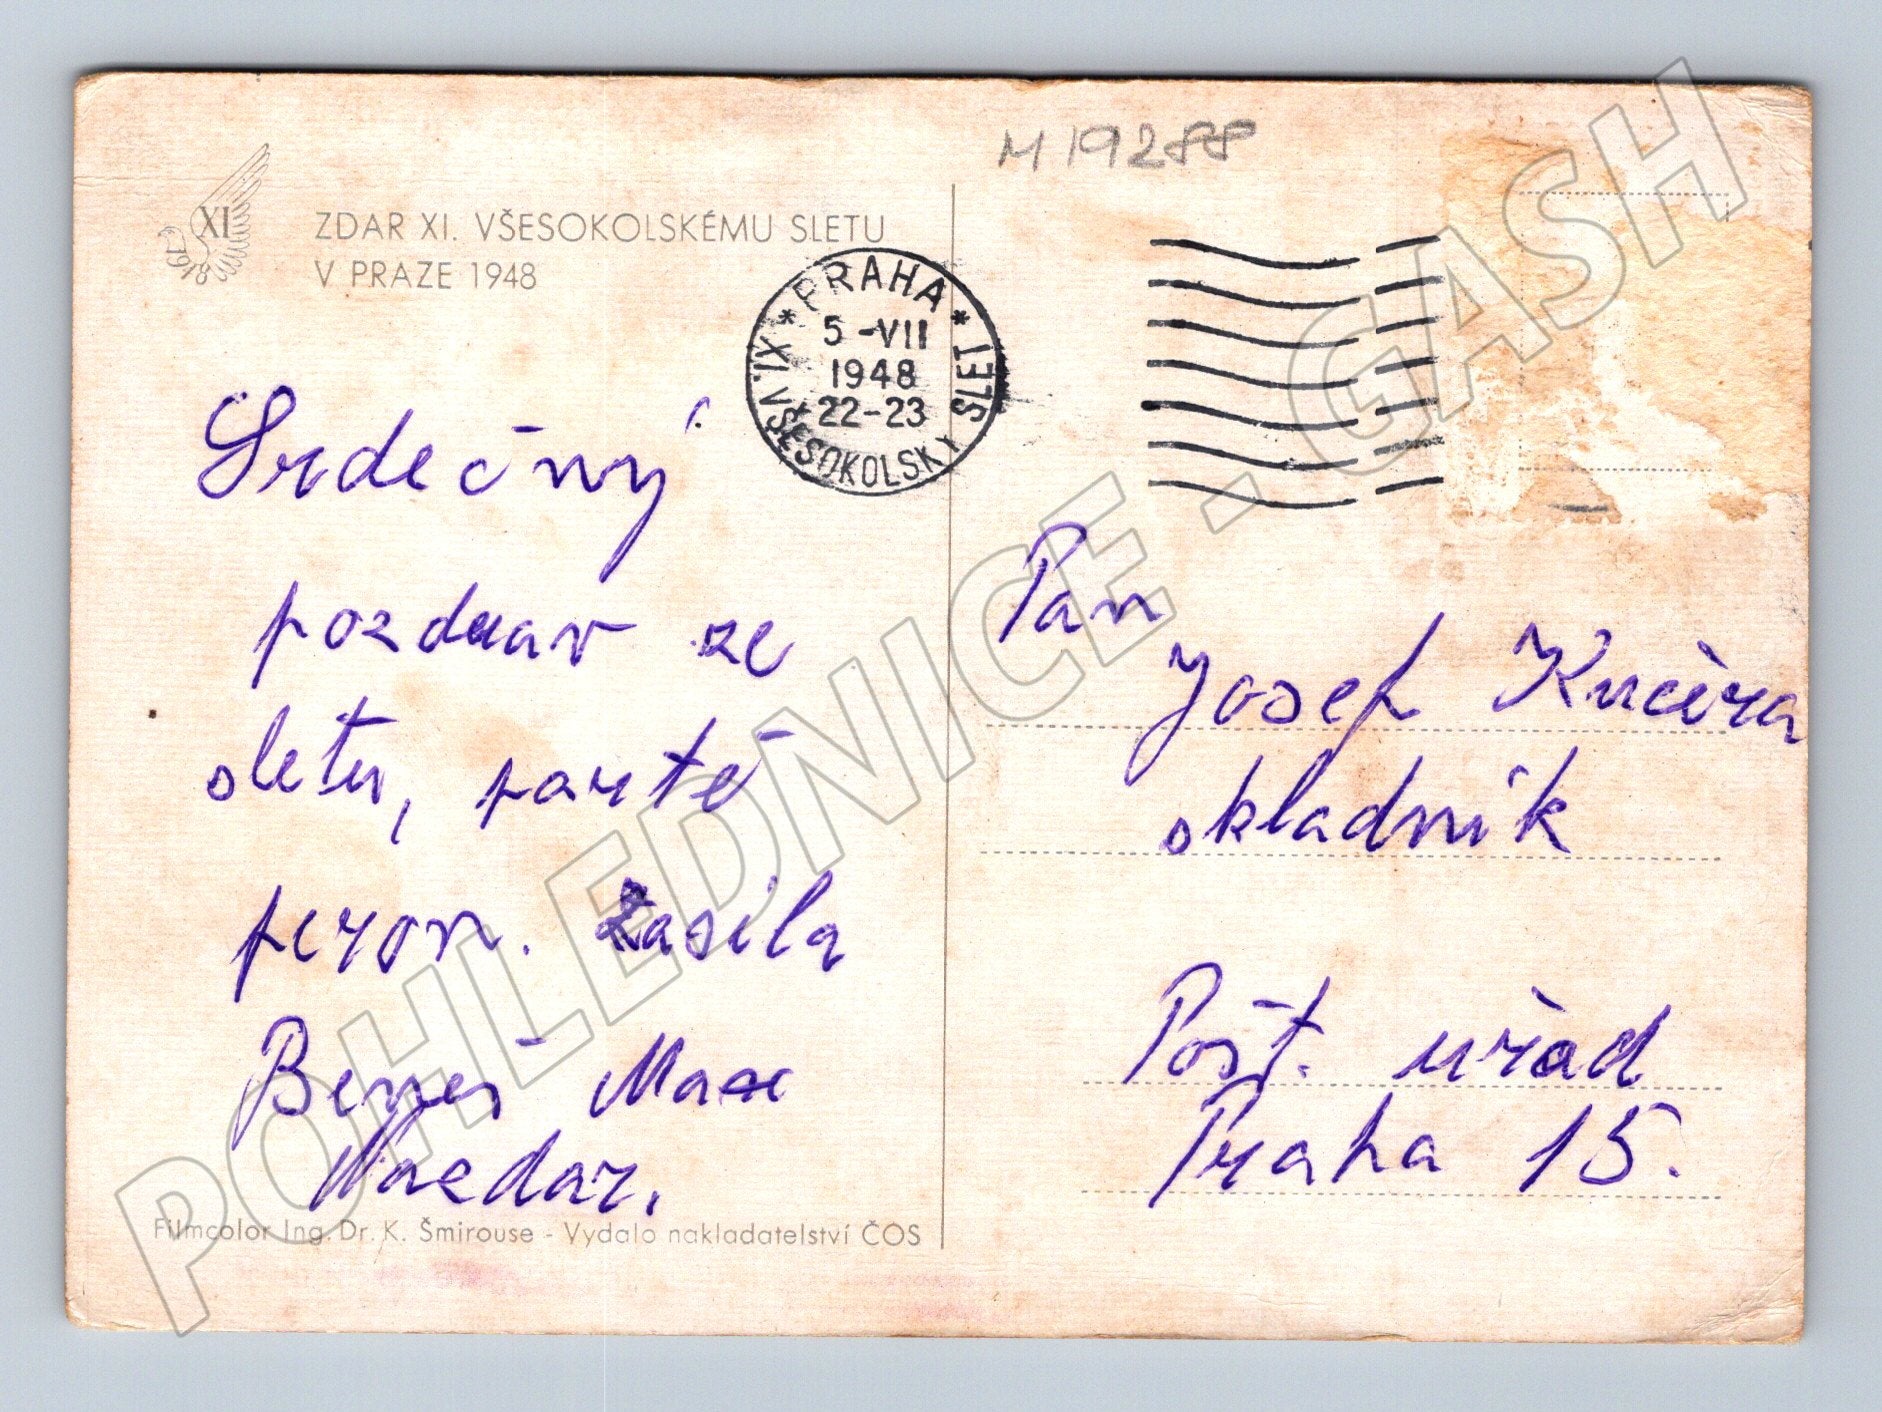 M 19288
XI
1948
ZDAR XI. VŠESOKOLSKÉMU SLETU
V PRAZE 1948
* PRAHA *
5 -VII
1948
22-23
XI. VŠESOKOLSKÝ SLET
Srdečný
pozdrav ze
sletu,
peron. Zasila
Beneš
Nazdar.
Pan
Josef Kučera
skladník
Pošt. uřad
Praha 15.
Filmcolor Ing. Dr. K. Šmirouse - Vydalo nakladatelství ČOS
POHLEDNICE - GASH